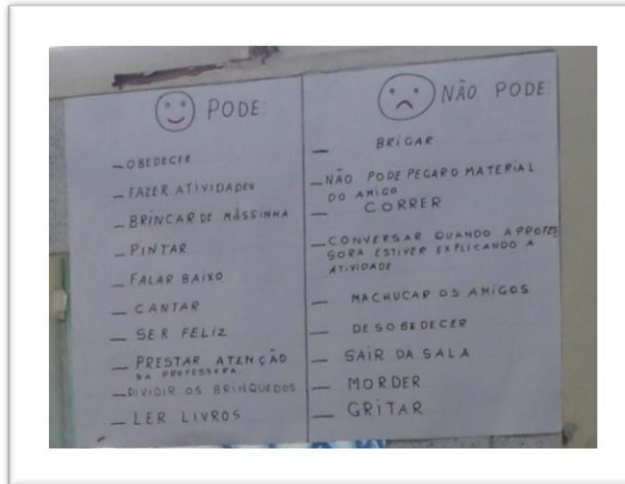 PODE:
_ OBEDECER
_ FAZER ATIVIDADES
_ BRINCAR DE MÁSSINHA
_ PINTAR
_ FALAR BAIXO
_ CANTAR
_ SER FELIZ
_ PRESTAR ATENÇÃO
NA PROFESSORA.
_ DIVIDIR OS BRINQUEDOS
_ LER LIVROS
NÃO PODE:
_ BRIGAR
_ NÃO PODE PEGAR O MATERIAL
DO AMIGO
_ CORRER
_ CONVERSAR QUANDO A PROFES
SORA ESTIVER EXPLICANDO A
ATIVIDADE
_ MACHUCAR OS AMIGOS
_ DESOBEDECER
_ SAIR DA SALA
_ MORDER
_ GRITAR